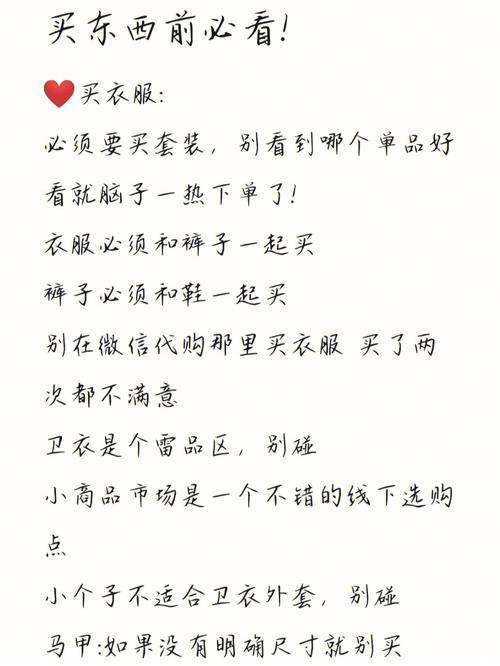 买东西前必看!
❤️买衣服:
必须要买套装，别看到哪个单品好
看就脑子一热下单了!
衣服必须和裤子一起买
裤子必须和鞋一起买
别在微信代购那里买衣服 买了两
次都不满意
卫衣是个雷品区，别碰
小商品市场是一个不错的线下选购
点
小个子不适合卫衣外套，别碰
马甲:如果没有明确尺寸就别买